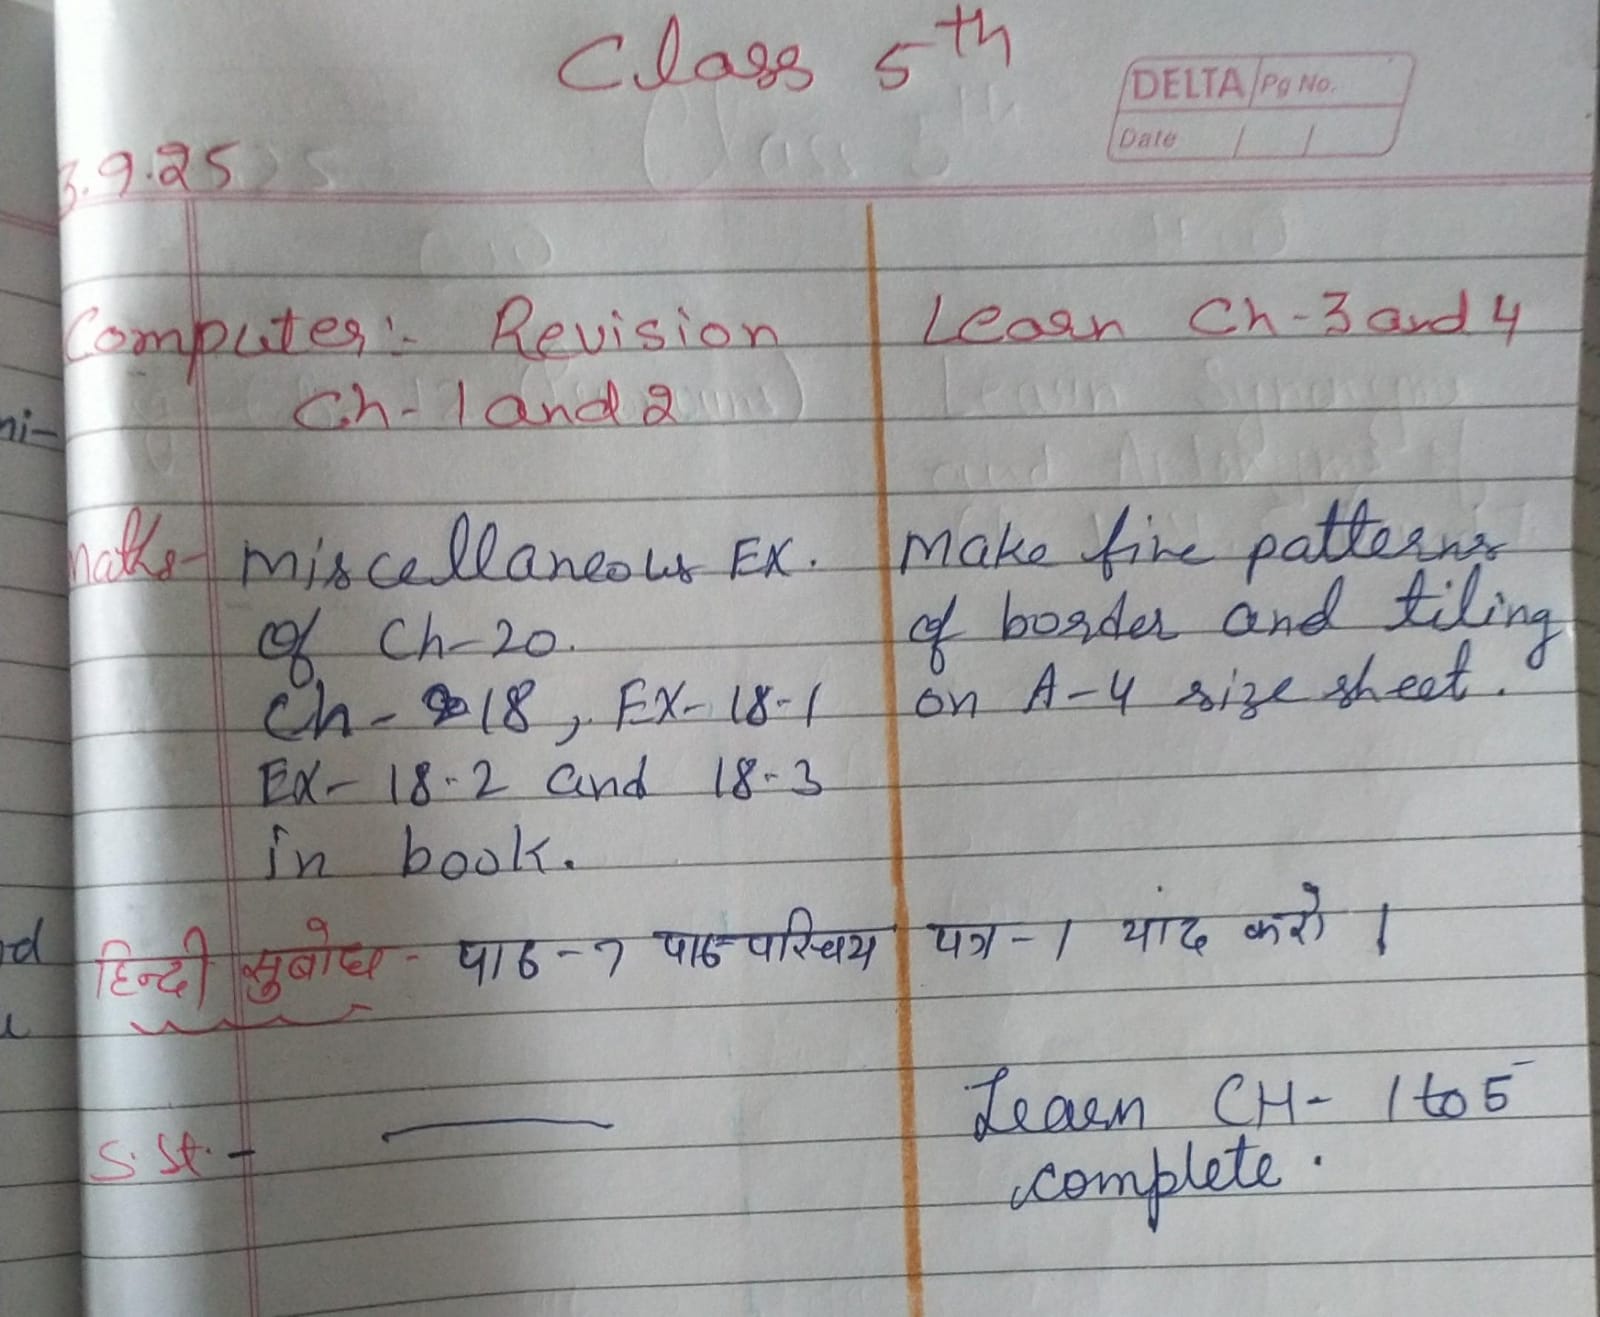 Class 5th
DELTA Pg No.
Date / /
3.9.25
Computer:- Revision
Ch-1 and 2
Learn Ch-3 and 4
Maths- Miscellaneous EX.
of Ch-20.
Ch-18, EX-18-1
EX-18-2 and 18-3
in book.
Make five patterns
of border and tiling
on A-4 size sheet.
हिन्दी सुबोध - पाठ-7 पाठ-परिचय
पत्र-1 याद करो।
S.St.-
Learn CH- 1 to 5
complete.